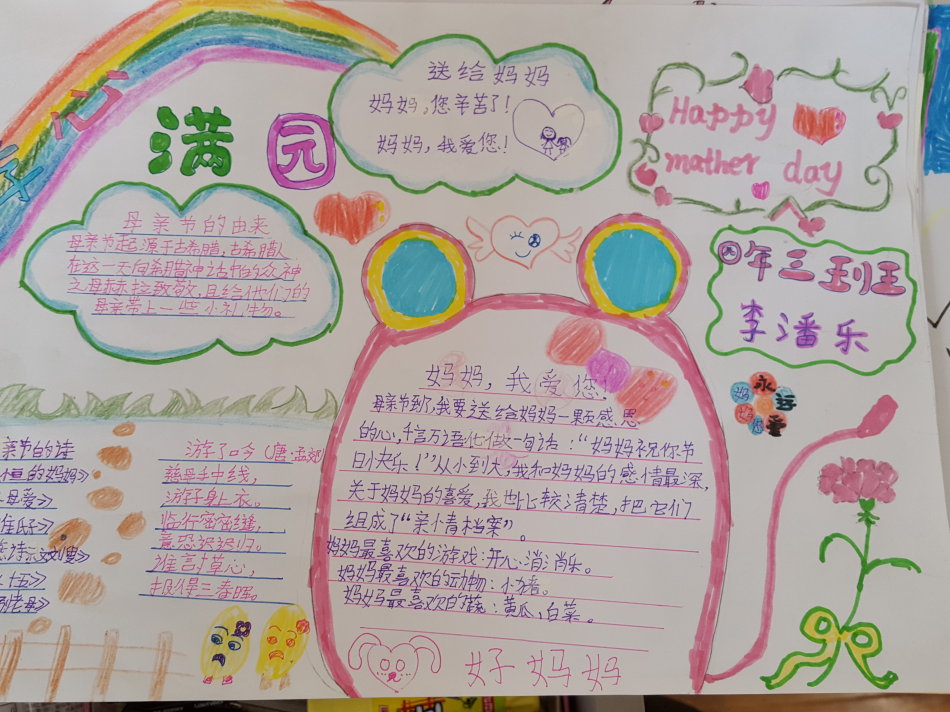 心满园
母亲节的由来
母亲节起源于古希腊,古希腊人
在这一天向希腊神话中的众神
之母赫拉致敬,且给他们的
母亲带上一些小礼物。
送给妈妈
妈妈,您辛苦了!
妈妈,我爱您!
Happy
mother day
年三班
李潘乐
游子吟(唐孟郊)
慈母手中线,
游子身上衣。
临行密密缝,
意恐迟迟归。
谁言寸草心,
报得三春晖。
妈妈,我爱您
母亲节到了,我要送给妈妈一颗感恩
的心,千言万语化做一句话:“妈妈祝你节
日快乐!”从小到大,我和妈妈的感情最深,
关于妈妈的喜爱,我也比较清楚,把它们
组成了“亲情档案”。
妈妈最喜欢的游戏:开心消消乐。
妈妈最喜欢的动物:小猪。
妈妈最喜欢的菜:黄瓜、白菜。
好妈妈